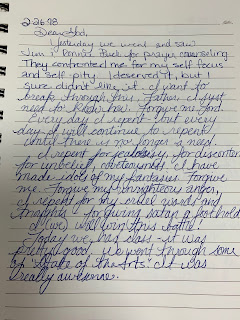 2-26-78
Dear Abd,
Yesterday we went and saw
Jim & Donna Buck for prayer counseling
They confronted me for my self focus
and self pity I deserved it, but I
sure didn't like it. I want to
break through this. Father, I just
need to Right now. Forgive me Lord.
Every day I repent - but every
day I will continue to repent
until there is no longer a need.
I repent for jealousy, for discontent
for unbelief, rebelliousness I have
made idols of my fantasies. Forgive
me. Forgive my unrighteous anger,
I repent for my cruel words and
for giving satan a foothold
I (we) will win this battle!
Today we has class - it was
pretty good. We went through some
of "State of the Arts" it was
really awesome.